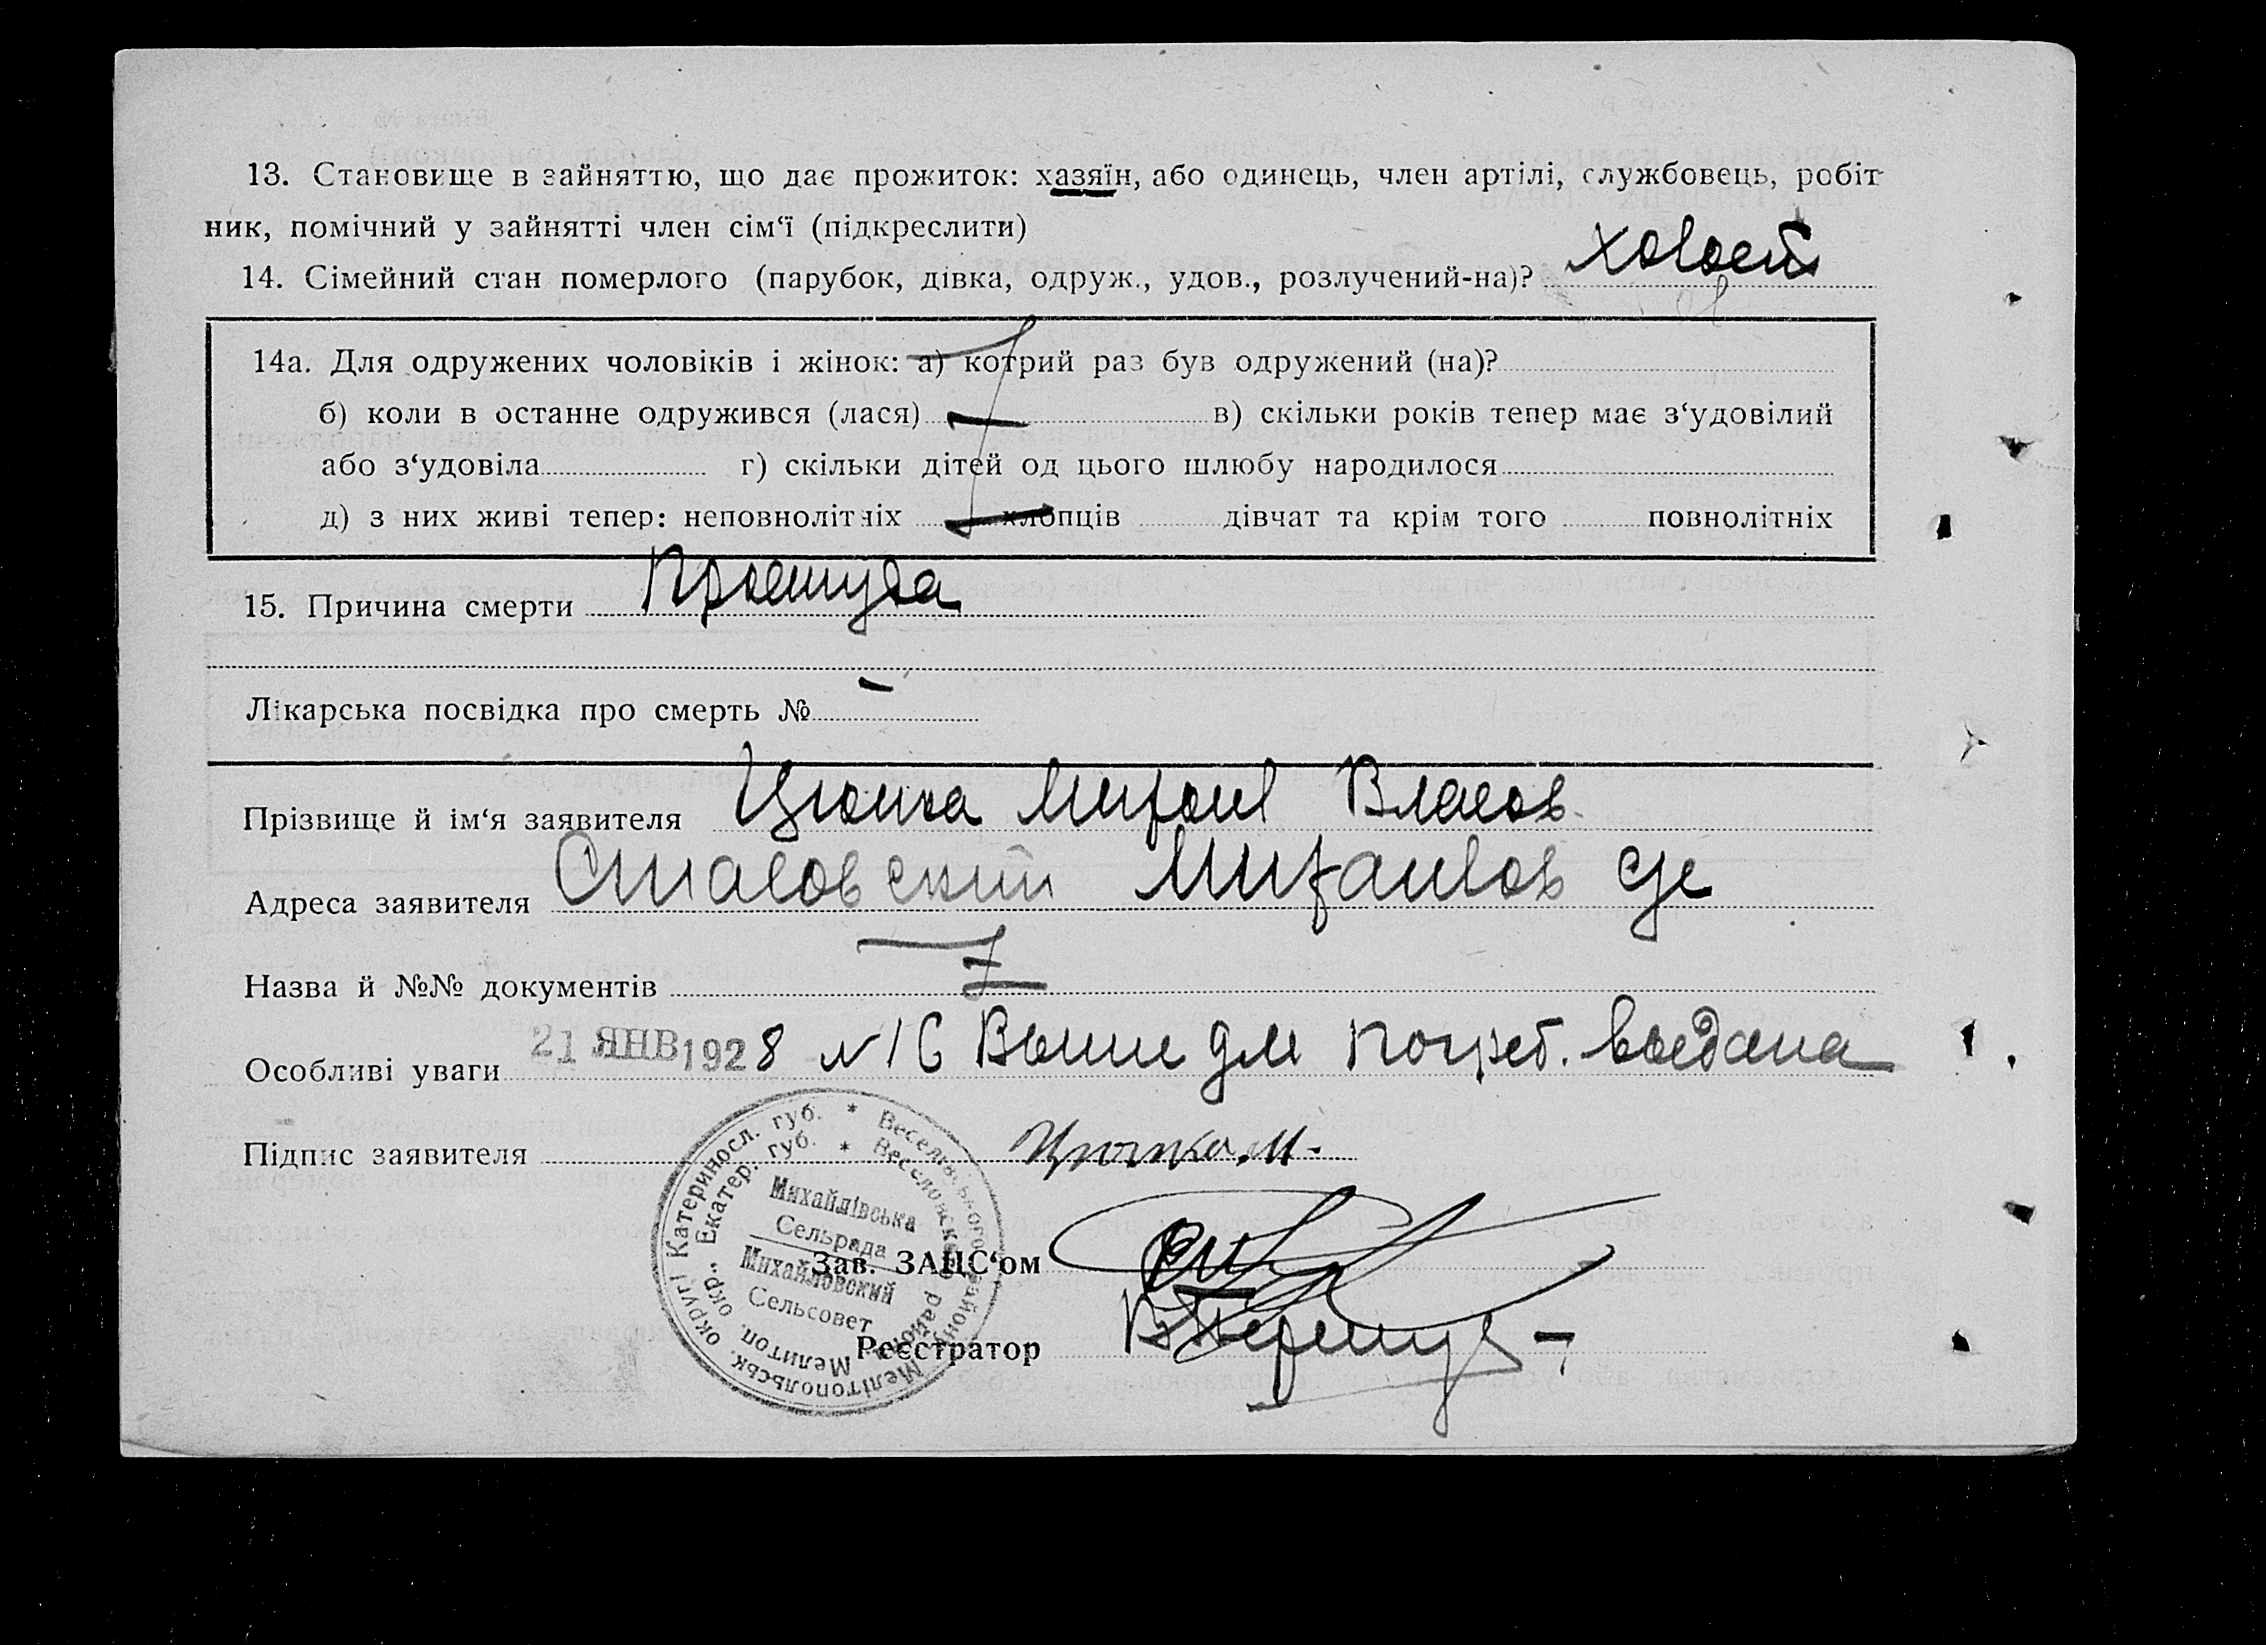 13. Становище в зайняттю, що дає прожиток: хазяїн, або одинець, член артілі, службовець, робіт-
ник, помічний у зайнятті член сім‘ї (підкреслити)
14. Сімейний стан померлого (парубок, дівка, одруж., удов., розлучений-на)? холост
14а. Для одружених чоловіків і жінок: а) котрий раз був одружений (на)?
б) коли в останне одружився (лася) — в) скільки років тепер має з‘удовілий
або з‘удовіла г) скільки дітей од цього шлюбу народилося
д) з них живі тепер: неповнолітніх — хлопців дівчат та крім того повнолітніх
15. Причина смерти Простуда
Лікарська посвідка про смерть № —
Прізвище й ім‘я заявителя Цюпка Михаил Власов
Адреса заявителя Михайлов с/с
Назва й №№ документів —
Особливі уваги 21 ЯНВ 1928 №16 для погреб. выдана
Підпис заявителя Цюпка М.
Зав. ЗАЦС‘ом
Реєстратор
Мелітопольськ. округі Катериносл. губ. * Весельвського району
Мелитоп. окр., Екатер. губ. * Веселовского района
Михайлівська
Сельрада
Михайловский
Сельсовет